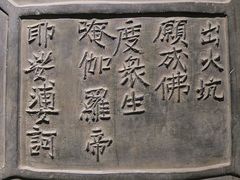 出火坑
願成佛
度衆生
唵伽羅帝
耶娑婆訶